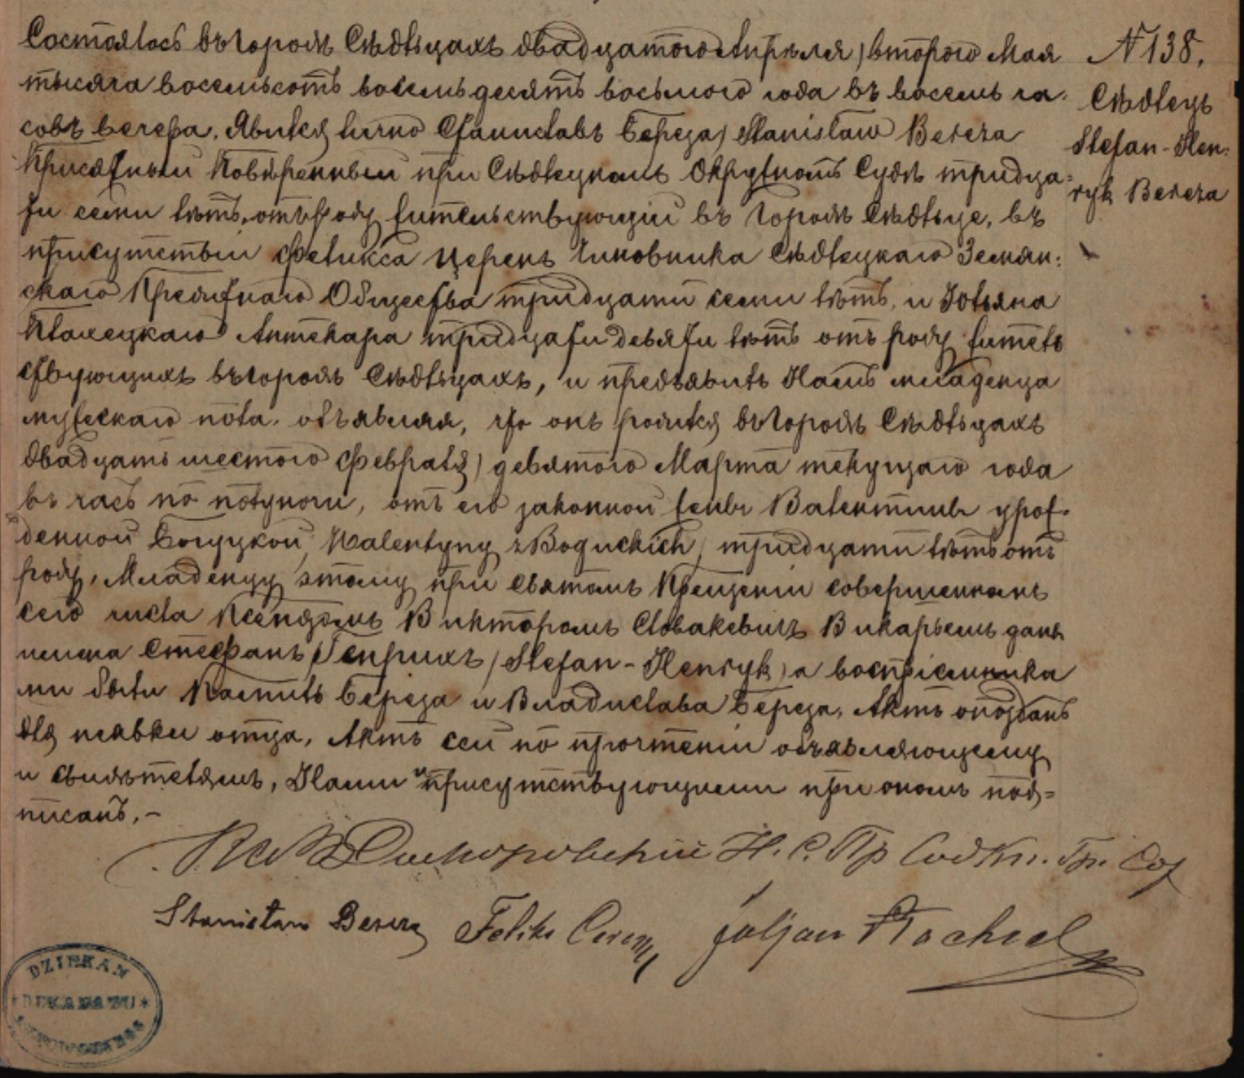 Состоялось въ городѣ Сѣдльцахъ двадцатого Апрѣля / второго Мая
тысяча восемьсотъ восемьдесятъ восьмого года въ восемь ча-
совъ вечера. Явился лично Станиславъ Береза / Stanisław Bereza
Присяжный Повѣренный при Сѣдлецкомъ Окружномъ Судѣ тридца-
ти семи лѣтъ, отъ роду жительствующій въ городѣ Сѣдльце, въ
присутствіи Феликса Церенъ Чиновника Сѣдлецкаго Земян-
скаго Кредитнаго Общества тридцати семи лѣтъ, и Юльяна
Аптекаря тридцати девяти лѣтъ отъ роду житель
ствующихъ въ городѣ Сѣдльцахъ, и предъявилъ Намъ младенца
мужескаго пола, объявляя, что онъ родился въ городѣ Сѣдльцахъ
двадцать шестого Февраля / девятого Марта текущаго года
въ часъ по полуночи, отъ его законной жены Валентины урож-
денной Богуцкой / Walentyny z Boguckich / тридцати лѣтъ отъ
роду. Младенцу этому при Святомъ Крещеніи совершенномъ
сего числа Ксендзомъ Викторомъ Словакевичъ Викарьемъ даны
имена Стефанъ Генрихъ / Stefan-Henryk / а воспріемника
ми были Камилъ Береза и Владислава Береза. Актъ опозданъ
для неявки отца. Актъ сей по прочтеніи объявляющему
и свидѣтелямъ, Нами и присутствующими при ономъ под-
писанъ.-
N 138.
Сѣдлецъ
Stefan-Hen-
ryk Bereza
Н. С. Пр
Stanisław Bereza Felix Ceren Juljan
DZIEKAN
DEKANATU